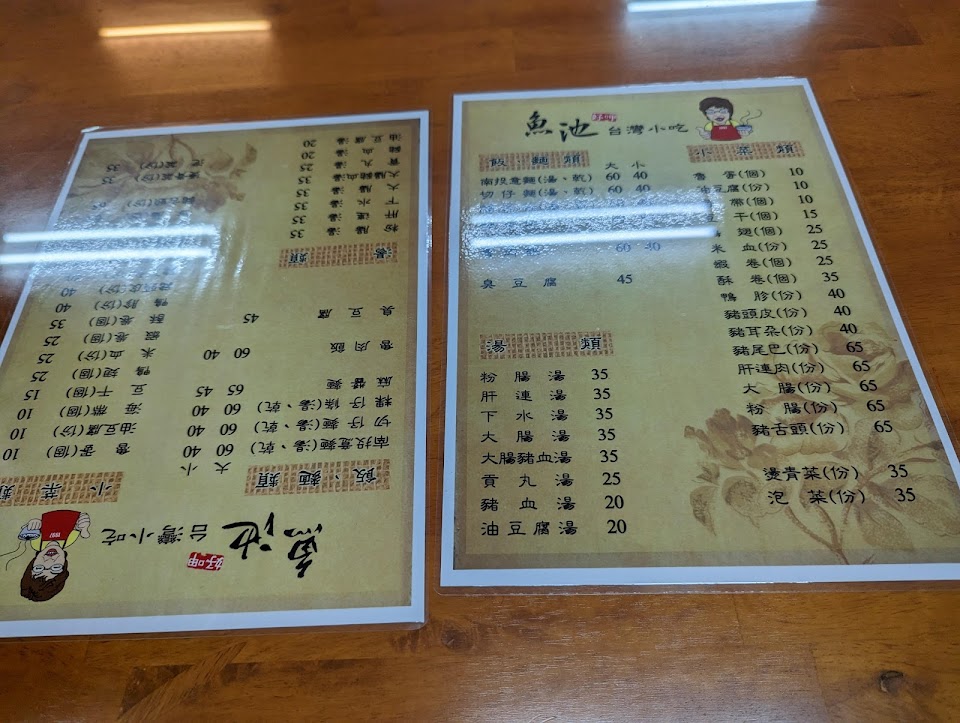 魚池 好呷 台灣小吃
飯、麵類 大 小
南投意麵(湯、乾) 60 40
切仔麵(湯、乾) 60 40
60 40
臭豆腐 45
湯類
粉腸湯 35
肝連湯 35
下水湯 35
大腸湯 35
大腸豬血湯 35
貢丸湯 25
豬血湯 20
油豆腐湯 20
小菜類
魯蛋(個) 10
油豆腐(份) 10
帶(個) 10
干(個) 15
翅(個) 25
米血(份) 25
蝦卷(個) 25
酥卷(個) 35
鴨胗(份) 40
豬頭皮(份) 40
豬耳朵(份) 40
豬尾巴(份) 65
肝連肉(份) 65
大腸(份) 65
粉腸(份) 65
豬舌頭(份) 65
燙青菜(份) 35
泡菜(份) 35
魚池 好呷 台灣小吃
飯、麵類 大 小
南投意麵(湯、乾) 60 40
切仔麵(湯、乾) 60 40
粿仔條(湯、乾) 60 40
麻醬麵 65 45
魯肉飯 60 40
臭豆腐 45
湯類
粉腸湯 35
肝連湯 35
下水湯 35
大腸湯 35
大腸豬血湯 35
貢丸湯 25
豬血湯 20
油豆腐湯 20
小菜類
魯蛋(個) 10
油豆腐(份) 10
海帶(個) 10
豆干(個) 15
鴨翅(個) 25
米血(份) 25
蝦卷(個) 25
酥卷(個) 35
鴨胗(份) 40
豬頭皮(份) 40
燙青菜(份) 35
泡菜(份) 35